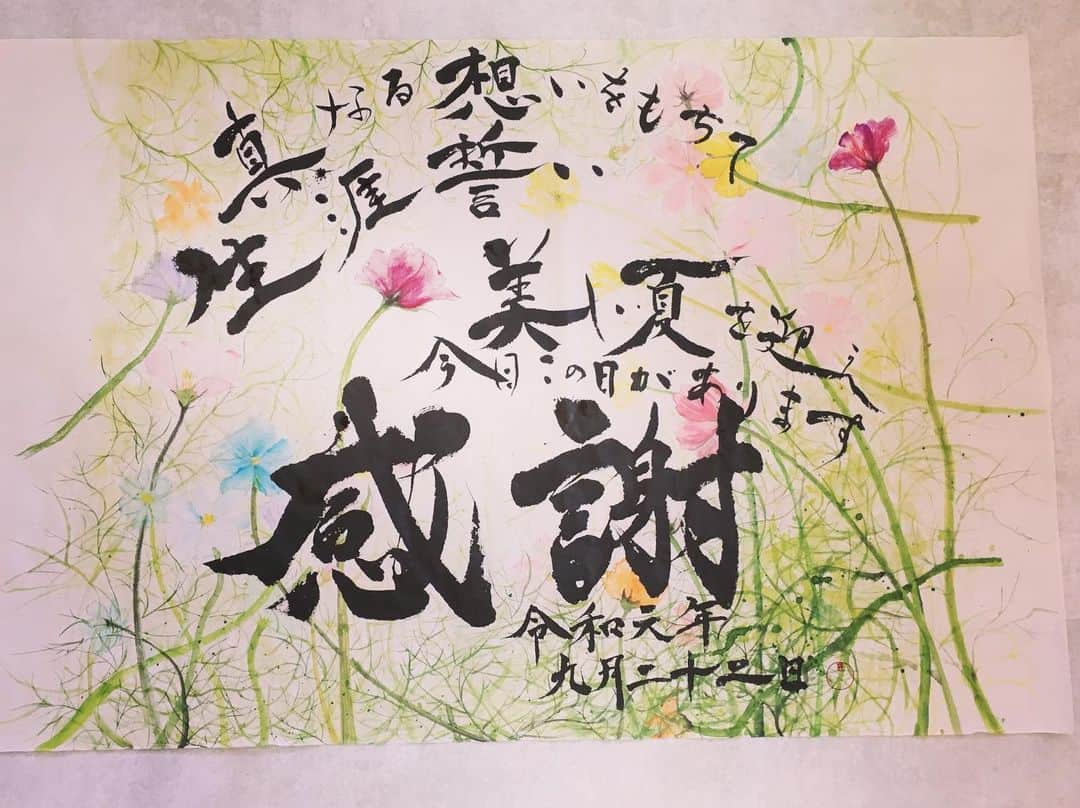 真なる想いをもちて
生涯誓い
美し夏を迎え
今日この日があります
感謝
令和元年
九月二十二日